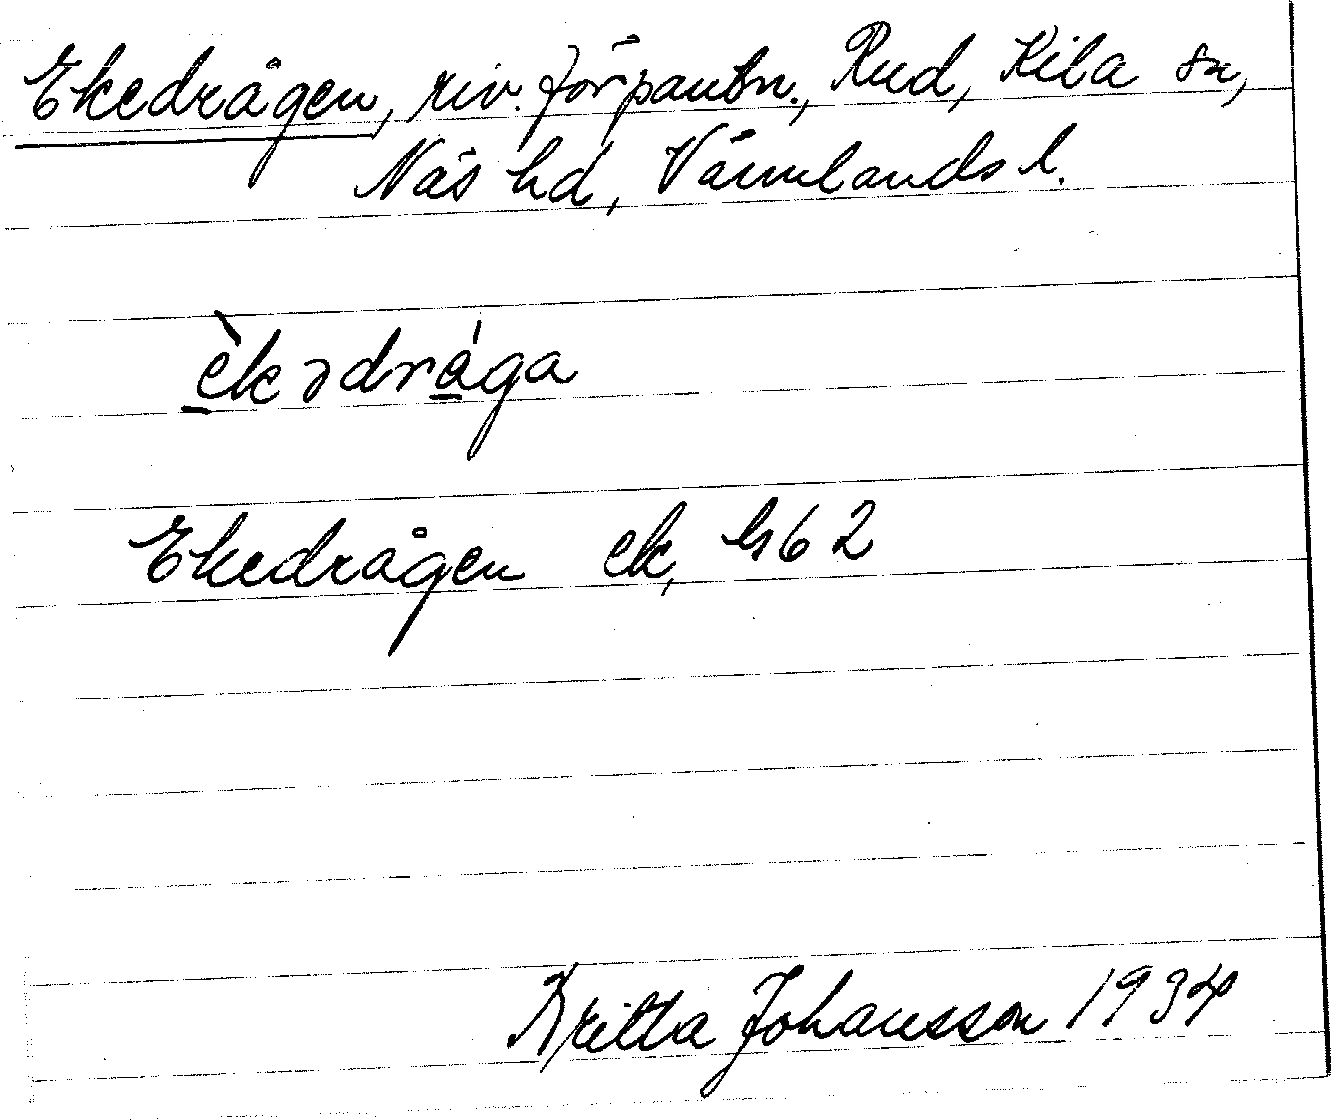 Ekedrågen, riv. förpantn., Rud, Kila sn,
Näs hd, Värmlands l.
èkədrága
Ekedrågen ek, bl 62
Britta Johansson 1934